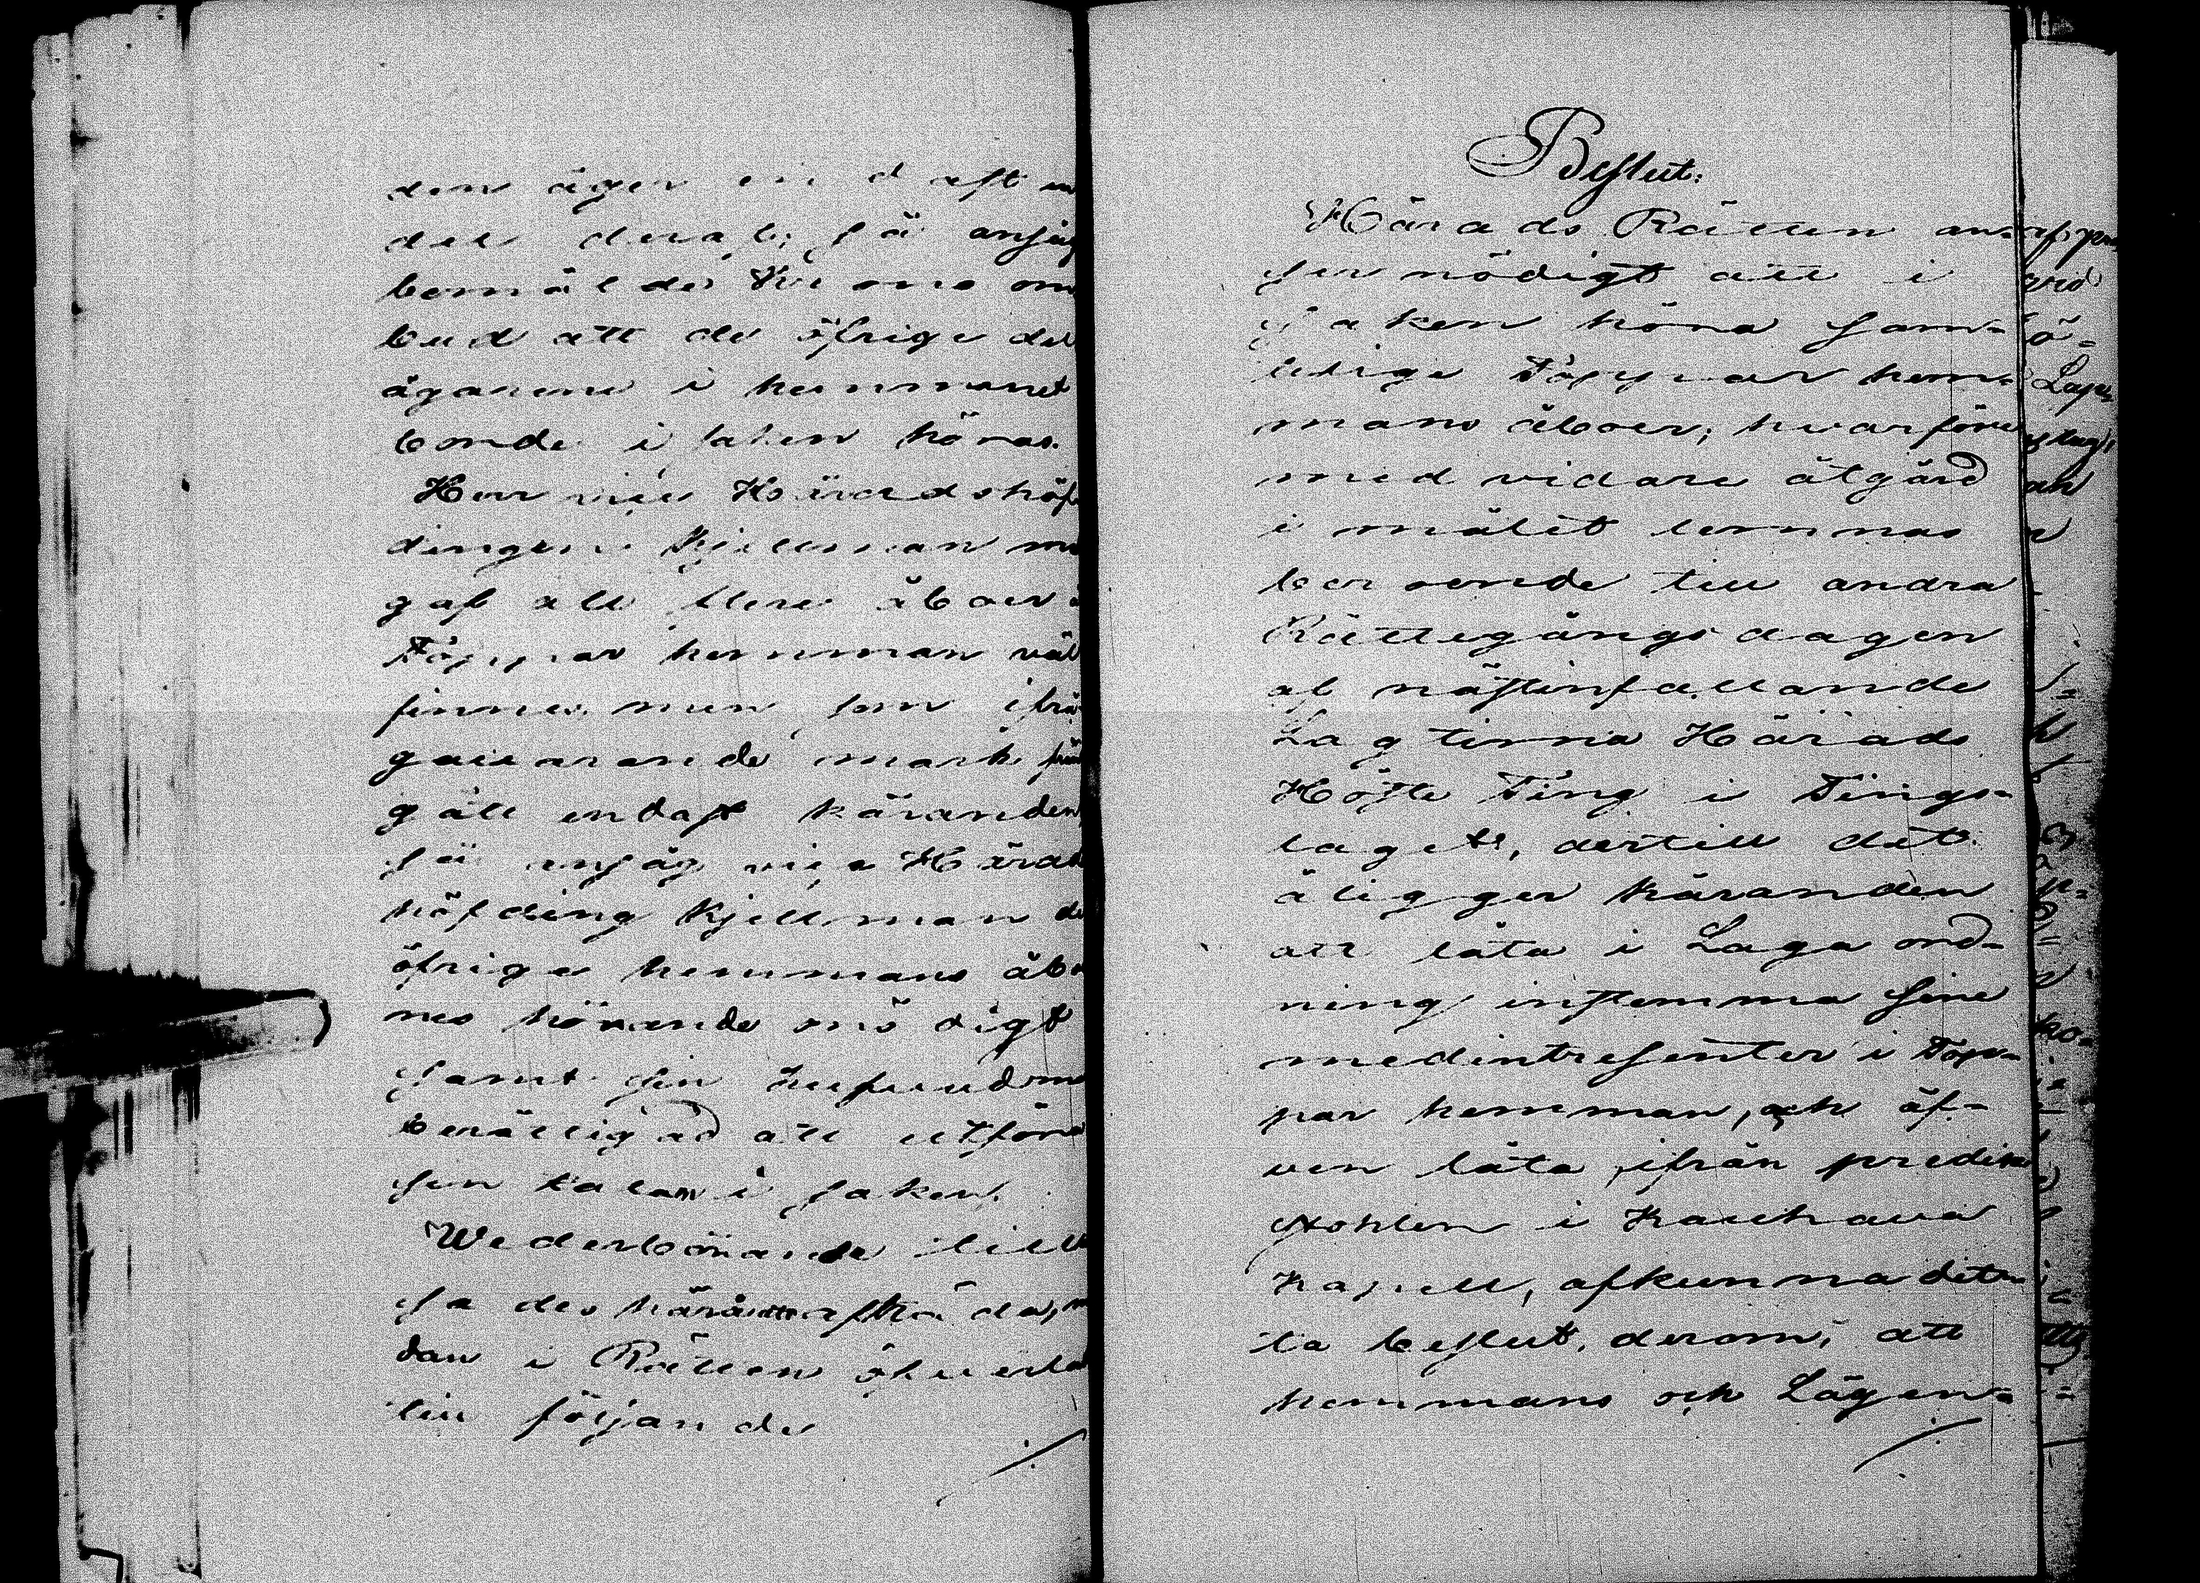 den äger endast en
del deraf; så ansåg
bemälde Krono om
bud att de öfrige del
ägarene i hemmanet
borde i saken höras.
Herr vice Häradshöf
dingen Kjellman me
gaf att flere åboer å
Töppar hemman väl
finnes men som ifrå
gavarande mark
gått endast käranden,
så ansåg vice Härads
höfding Kjellman de
öfrige hemmans åbo
nes hörande onödigt
samt sin hufvudm
berättigad att utföra
sin talan i saken.
Wederbörande till
sades härå afträda,
dan i Rätten öfverla
till följande
Beslut:
Härads Rätten an-
ser nödigt att i
saken höra sam-
telige Töppar hem-
mans åboer; hvarföre
med vidare åtgärd
i målet lemnas
beroende till andra
Rättegångsdagen
af nästinfallande
Lagtima Härads
Höste Ting i Tings-
laget, dertill det
åligger käranden
att låta i Laga ord-
ning instemma sine
medintresenter i Töp-
par hemman, och äf-
ven låta, ifrån predik
stohlen i Kauhava
Kapell, afkunna det-
ta beslut, derom, att
hemmans och Lägen-